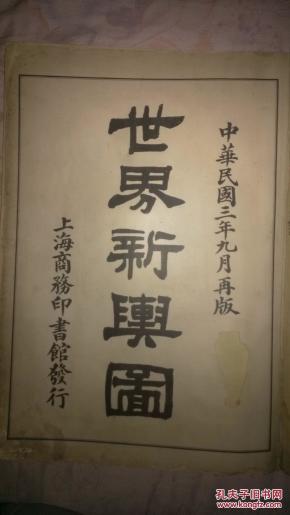 中華民國三年九月再版
世界新輿圖
上海商務印書館發行
孔夫子旧书网